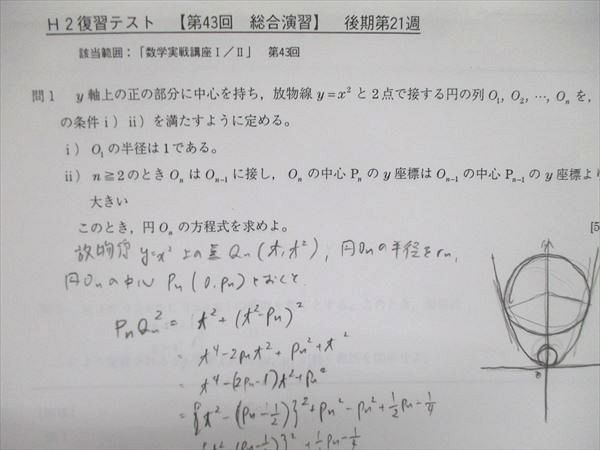 H2復習テスト 【第43回 総合演習】 後期第21週
該当範囲:「数学実戦講座Ⅰ/Ⅱ」 第43回
問1 y軸上の正の部分に中心を持ち,放物線 y=x² と2点で接する円の列 O₁, O₂, …, Oₙ を,
の条件 i) ii) を満たすように定める。
i) O₁の半径は1である。
ii) n≧2のとき Oₙ は Oₙ₋₁ に接し, Oₙ の中心 Pₙ の y 座標は Oₙ₋₁ の中心 Pₙ₋₁ の y 座標より
大きい
このとき,円 Oₙ の方程式を求めよ。 [5
放物線 y=x² 上の点 Qₙ (t, t²), 円Oₙの半径をrₙ,
円Oₙの中心 Pₙ (0, pₙ) とおくと
PₙQₙ² = t² + (t²-pₙ)²
= t⁴-2pₙt²+pₙ²+t²
= t⁴-(2pₙ-1)t²+pₙ²
= {t²-(pₙ-1/2)}²+pₙ²-pₙ²+1/2pₙ-1/4